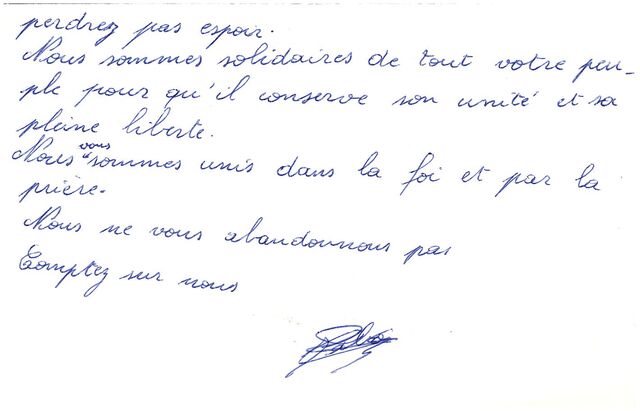 perdrez pas espoir.
Nous sommes solidaires de tout votre peu-
ple pour qu'il conserve son unité et sa
pleine liberte.
Nous vous sommes unis dans la foi et par la
prière.
Nous ne vous abandonnons pas
Comptez sur nous